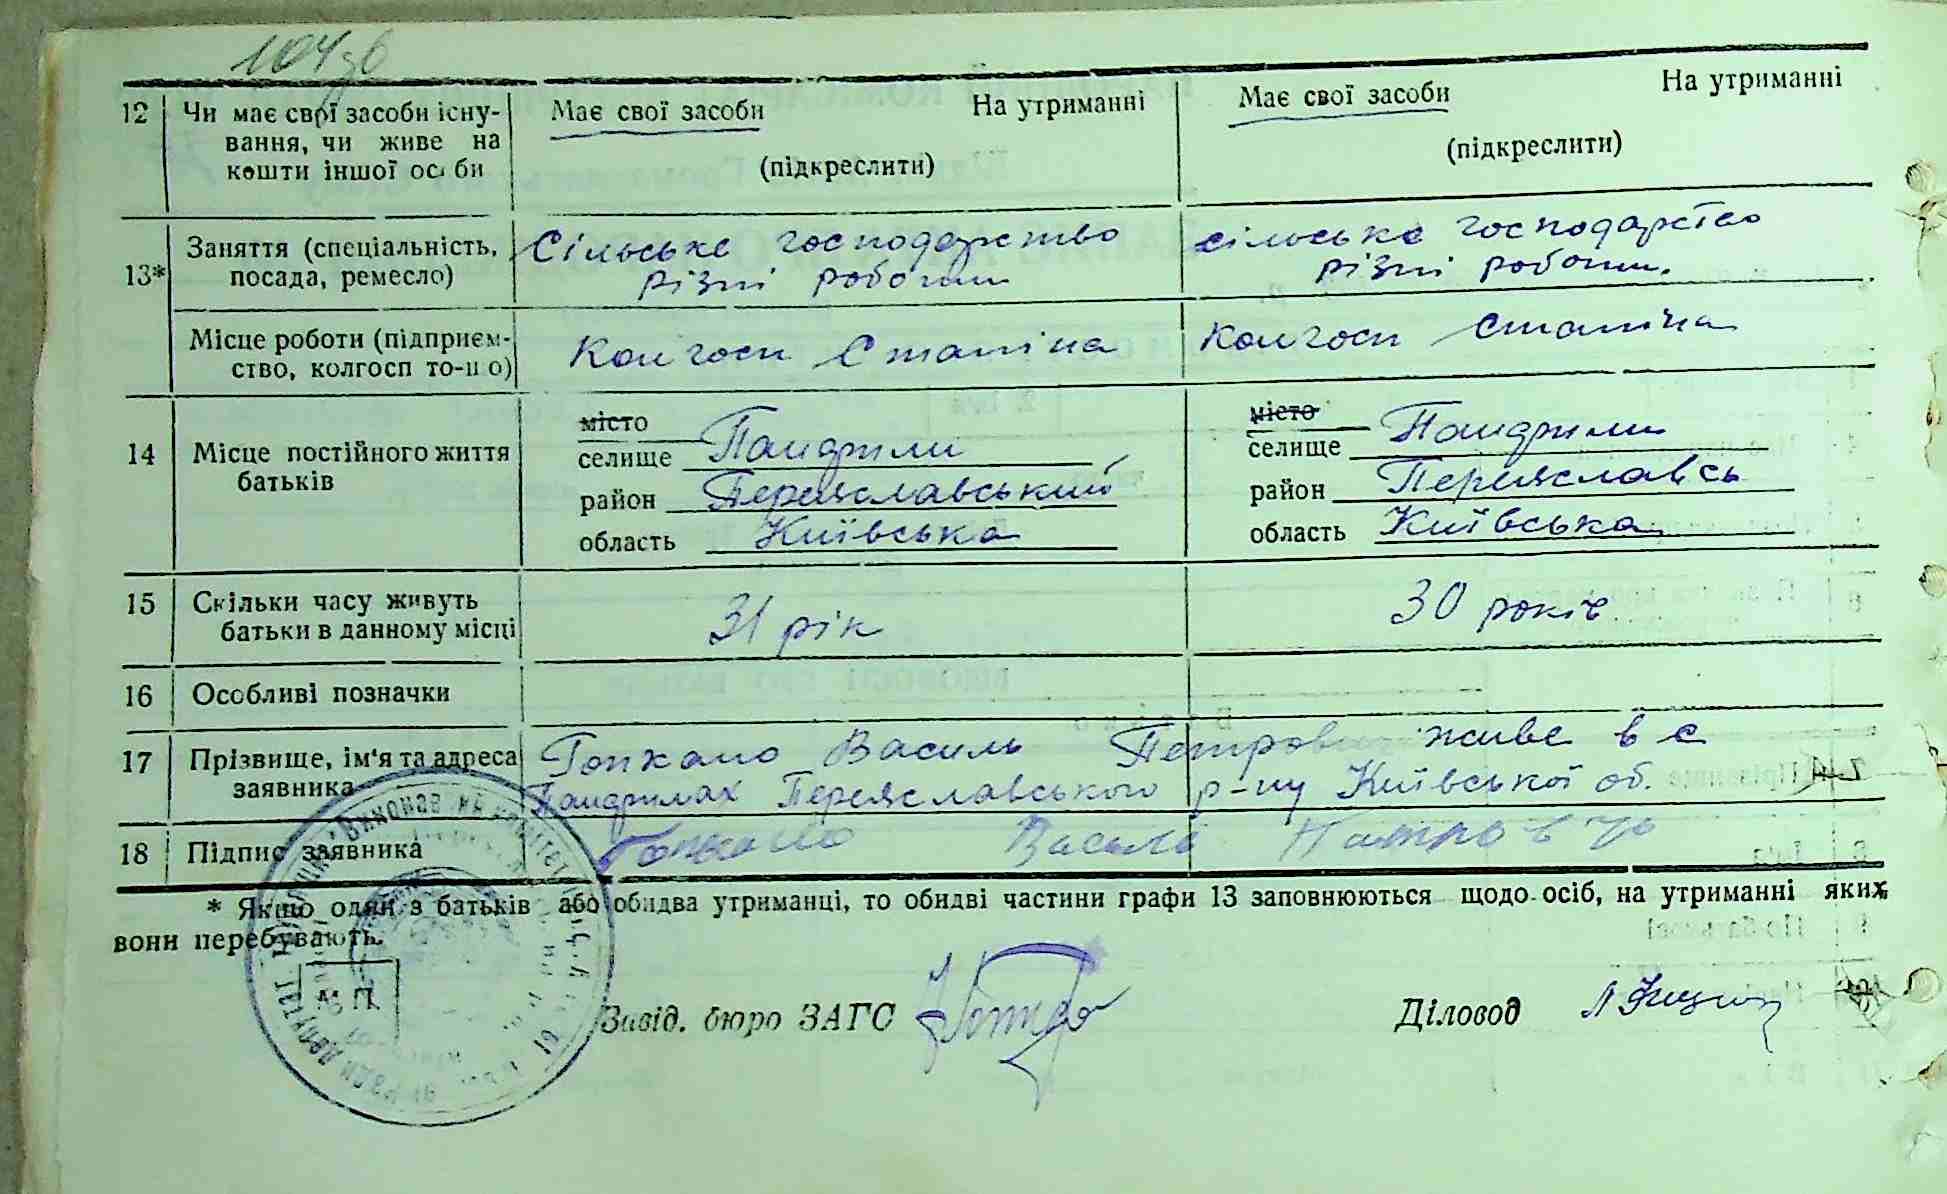 104 зв
12 Чи має свої засоби існу- Має свої засоби На утриманні Має свої засоби На утриманні
вання, чи живе на
кошти іншої особи (підкреслити) (підкреслити)
13* Заняття (спеціальність, Сільське господарство сільське господарство
посада, ремесло) різні роботи різні роботи.
Місце роботи (підприєм- Колгосп Сталіна Колгосп Сталіна
ство, колгосп то-що)
14 Місце постійного життя місто місто
батьків селище Пандрили селище Пандрили
район Переяславський район Переяславсь
область Київська область Київська
15 Скільки часу живуть 31 рік 30 років
батьки в данному місці
16 Особливі позначки
17 Прізвище, ім'я та адреса Гопкало Василь Петров живе в с
заявника Переяславського р-ну Київської об.
18 Підпис заявника Гопкало Василь
* Якщо один з батьків або обидва утриманці, то обидві частини графи 13 заповнюються щодо осіб, на утриманні яких
вони перебувають.
М. П.
Завід. бюро ЗАГС Діловод